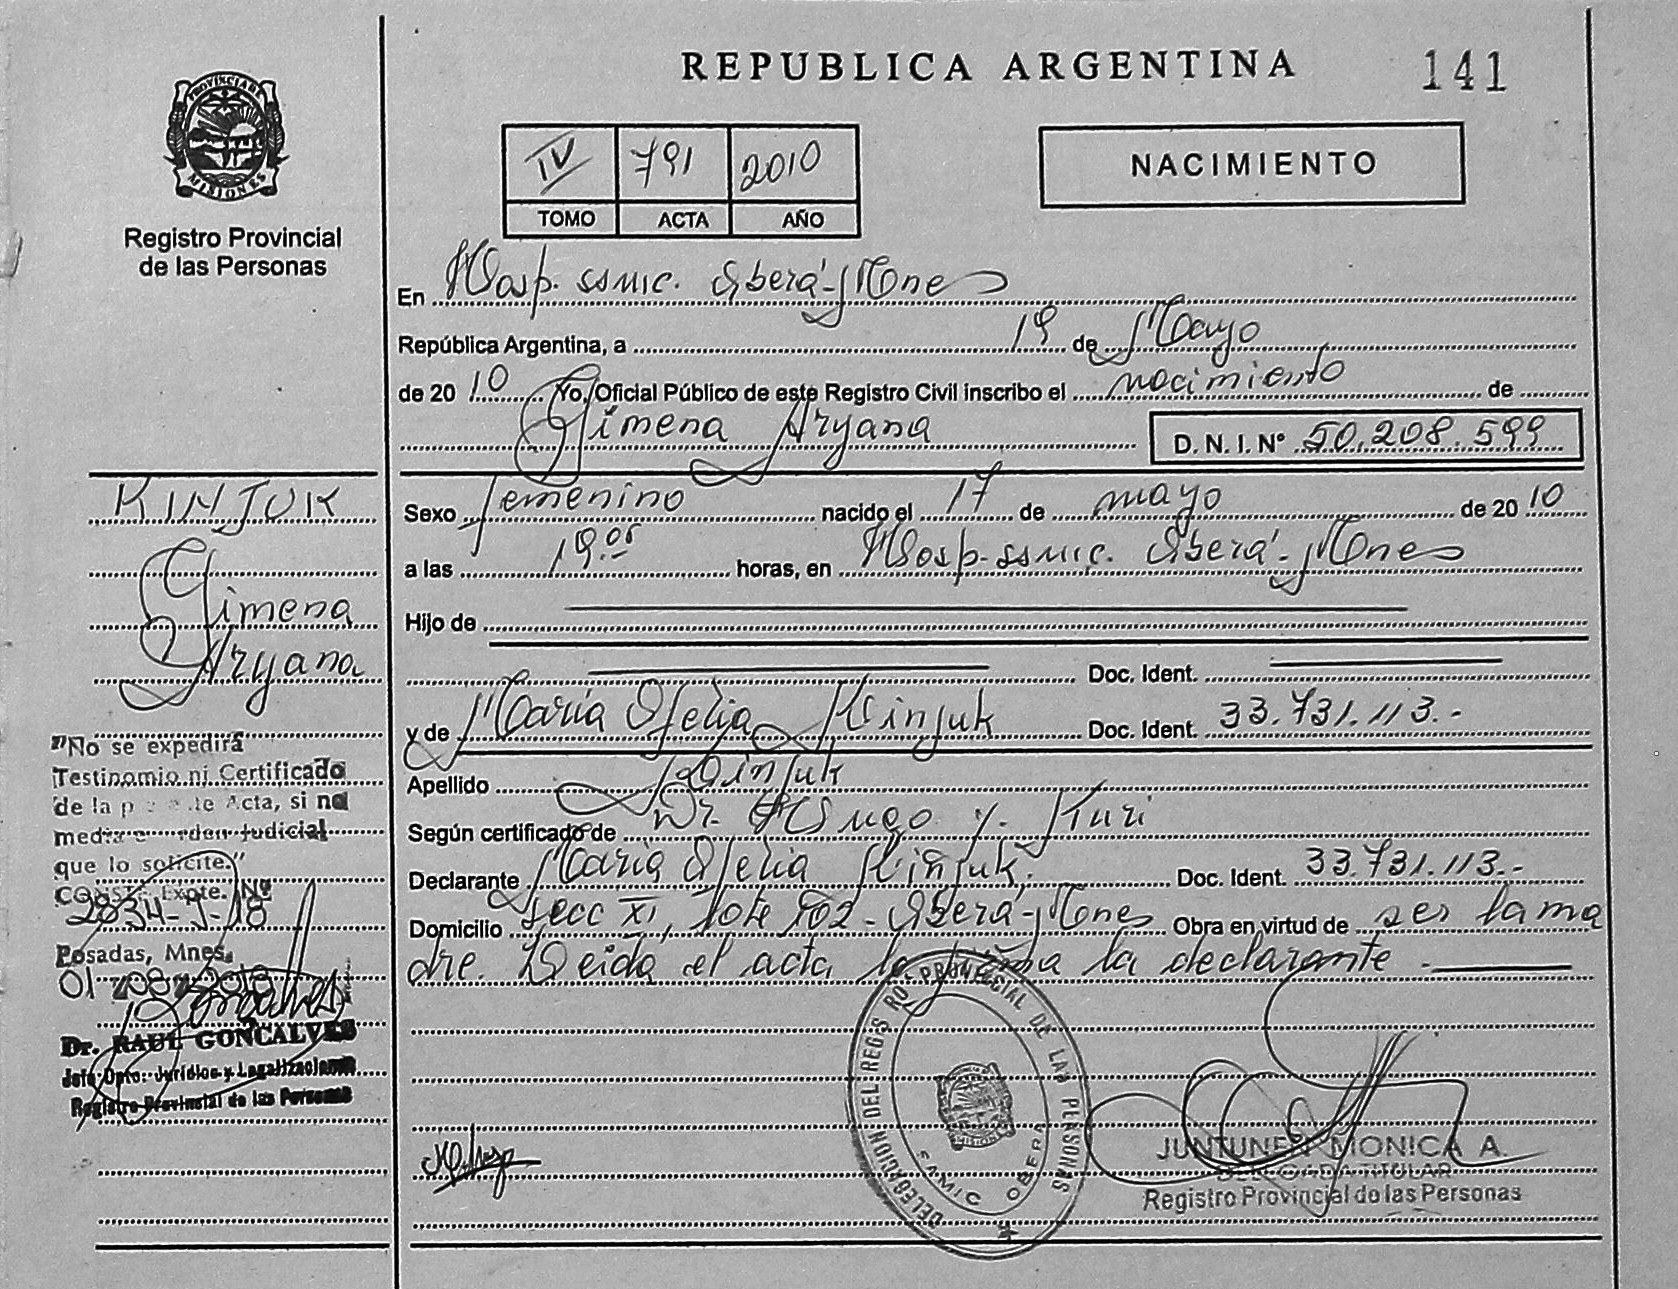 REPUBLICA ARGENTINA
141
PROVINCIA DE
MISIONES
Registro Provincial
de las Personas
IV 791 2010
TOMO ACTA AÑO
NACIMIENTO
En Hosp. ssmic. Oberá-Mnes
República Argentina, a 19 de Mayo
de 2010 Yo, Oficial Público de este Registro Civil inscribo el nacimiento de
Gimena Aryana
D. N. I. Nº 50.208.599
Sexo femenino nacido el 17 de mayo de 2010
a las 19.05 horas, en Hosp. ssmic. Oberá-Mnes
Hijo de
Doc. Ident.
y de María Ofelia Kinjuk Doc. Ident. 33.731.113.-
Apellido Kinjuk
Según certificado de Dr. Hugo Y. Kuri
Declarante María Ofelia Kinjuk. Doc. Ident. 33.731.113.-
Domicilio secc XI, lote 102-Oberá-Mnes Obra en virtud de ser la ma
dre. Leída el acta la firma la declarante.
KINJUK
Gimena
Aryana
"No se expedirá
Testinomio ni Certificado
de la Acta, si no
media orden judicial
que lo solicite."
CONSTE Expte. Nº
2034-J-18
Posadas, Mnes.
01 08 2018
Dr. RAUL GONCALVES
Jefe Dpto. Jurídico y Legalizaciones
Registro Provincial de las Personas
DELEGACION DEL REGISTRO PROVINCIAL DE LAS PERSONAS
MISIONES
SAMIC OBERA
JUNTUNEN MONICA A.
DELEGADA TITULAR
Registro Provincial de las Personas